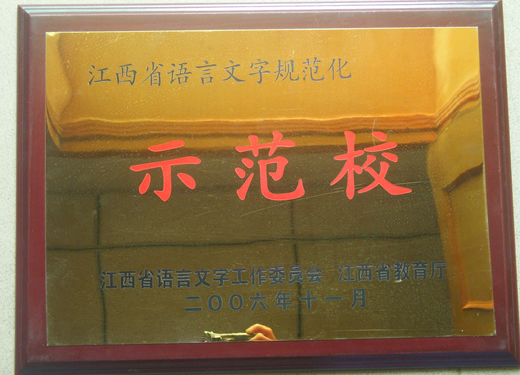 江西省语言文字规范化
示范校
江西省语言文字工作委员会 江西省教育厅
二〇〇六年十一月